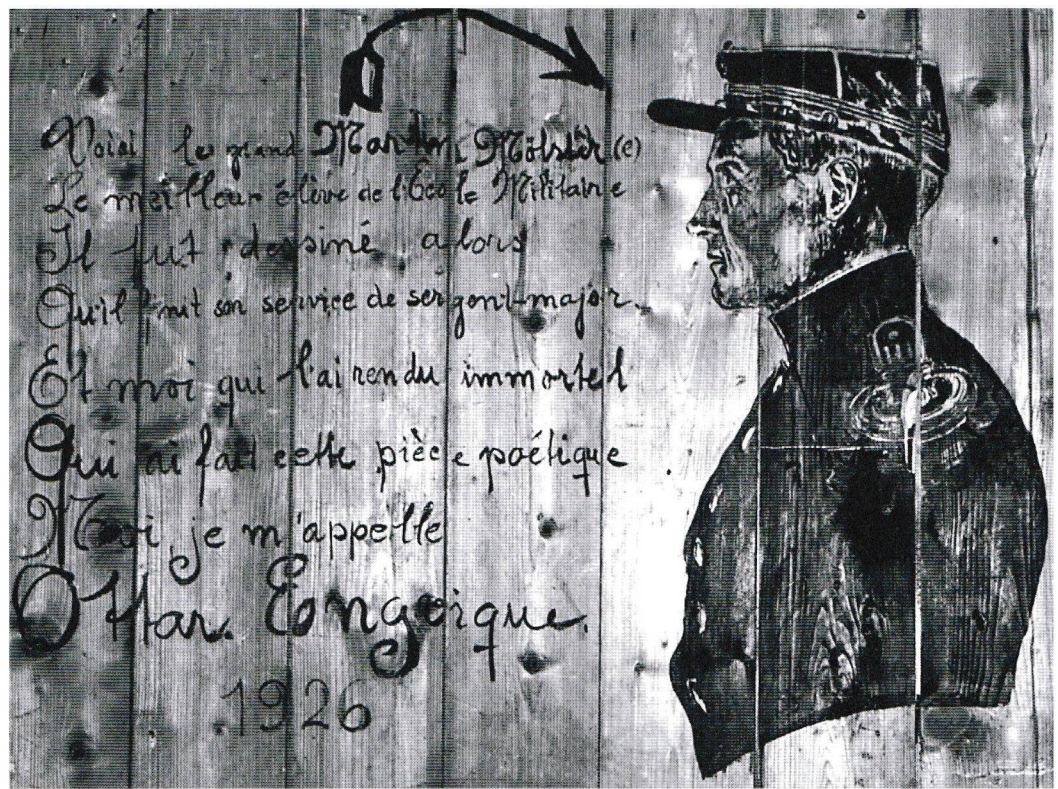 Voici le grand Martin Mölster (e)
Le meilleur élève de l'École Militaire
Il fut dessiné alors
Qu'il finit son service de sergent-major
Et moi qui l'ai rendu immortel
Qui ai fait cette pièce poétique
Moi je m'appelle
Ottar. Engoique.
1926